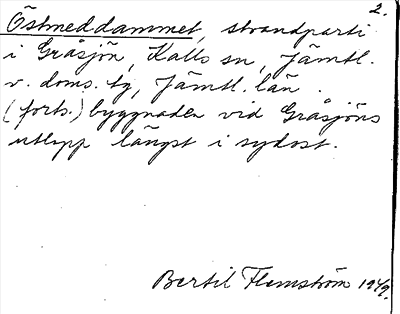 2.
Östmeddammet, strandparti
i Gråsjön, Kalls sn, Jämtl.
v. doms. tg, Jämtl. län.
(forts.) byggnaden vid Gråsjöns
utlopp längst i sydost.
Bertil Flemström 1949.